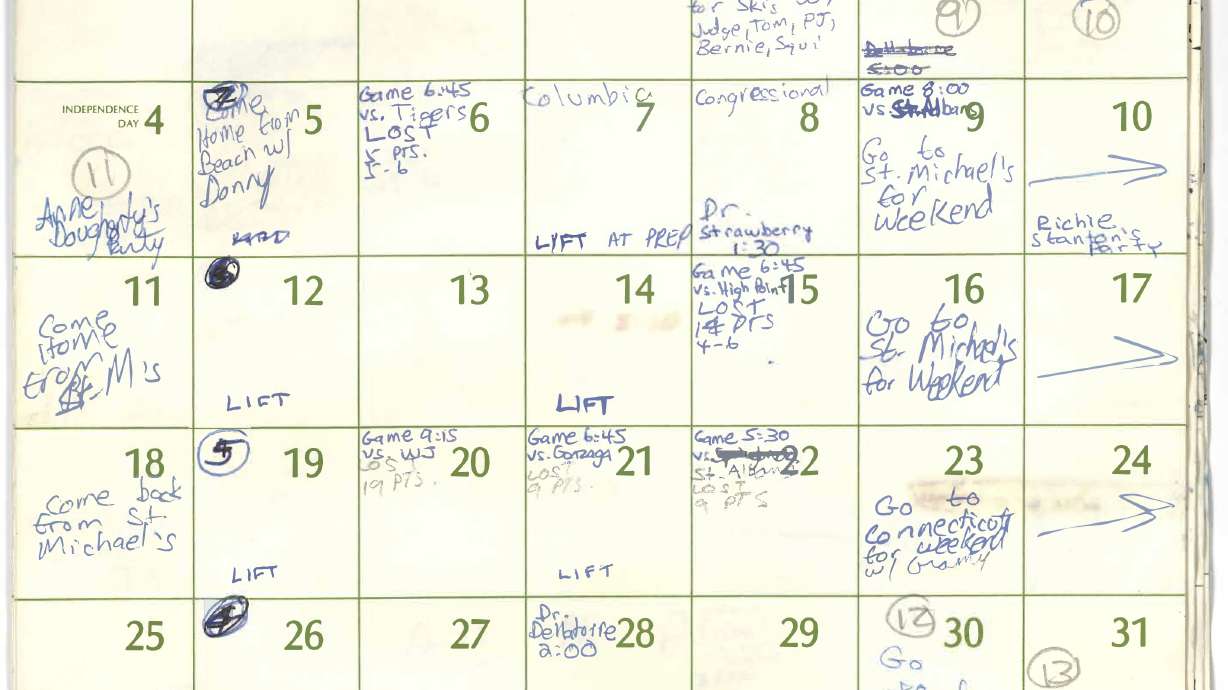 for Skis
Judge, Tom, PJ,
Bernie, Squi
9
5:00
10
INDEPENDENCE
DAY 4
11
Anne
Dougherty's
Party
5
Come
Home from
Beach w/
Donny
6
Game 6:45
vs. Tigers
LOST
5 PTS.
5-6
7
Columbia
LIFT AT PREP
8
Congressional
Dr.
Strawberry
1:30
9
Game 8:00
vs. St. Albans
Go to
St. Michael's
for
Weekend
10
Richie
Stanton's
Party
11
Come
Home
from
St. M's
12
LIFT
13
14
LIFT
15
Game 6:45
vs. High Point
LOST
PTS
4-6
16
Go to
St. Michael's
for Weekend
17
18
Come back
from St.
Michael's
5
19
LIFT
20
Game 9:15
vs. WJ
LOST
19 PTS.
21
Game 6:45
vs. Gonzaga
LOST
9 PTS.
LIFT
22
Game 5:30
vs.
St. Albans
LOST
9 PTS
23
Go to
Connecticut
for weekend
w/ Grammy
24
25
4
26
27
28
Dr.
Dellatorre
2:00
29
12
30
Go
13
31